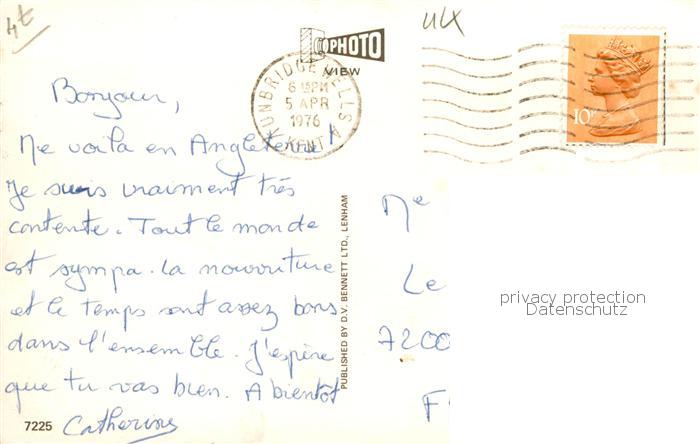 4t
PHOTO
VIEW
UK
TUNBRIDGE WELLS
6 15PM
5 APR
1976
KENT
10P
Bonjour,
Me voilà en Angleterre!
Je suis vraiment très
contente. Tout le monde
est sympa. La nourriture
et le temps sont assez bons
dans l'ensemble. J'espère
que tu vas bien. A bientôt
Catherine
7225
PUBLISHED BY D.V. BENNETT LTD., LENHAM
Me
Le
7200
F
privacy protection
Datenschutz